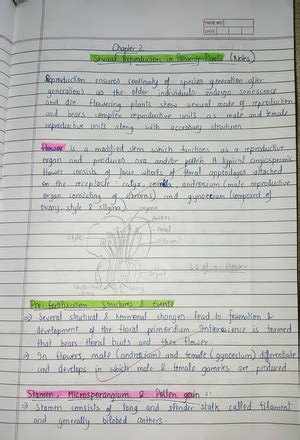 PAGE NO.
DATE
Chapter 2
Sexual Reproduction in flowering Plants (Notes)
Reproduction ensures continuity of species generation after
generations as the older individuals undergo senescence
and die. Flowering plants show sexual mode of reproduction
and bears complex reproductive units as male and female
reproductive units along with accessory structures
Flower is a modified stem which functions as a reproductive
organ and produces ova and/or pollen. A typical angiospermic
flower consists of four whorls of floral appendages attached
on the receptacle: calyx, androecium (male reproductive
organ consisting of stamens) and gynoecium (composed of
ovary, style & stigma)
stigma
Style
Petal
Sepal
Ovary
L.S of a flower
Pre-fertilisation: Structures & Events
⇒ Several structural & hormonal changes lead to formation &
development of the floral primordium. Inflorescence is formed
that bears floral buds and then flower.
⇒ In flowers, male (androecium) and female (gynoecium) differentiate
and develops in which male & female gametes are produced
Stamen, Microsporangium & Pollen grain :-
⇒ Stamen consists of long and slender stalk called filament
and generally bilobed anthers.